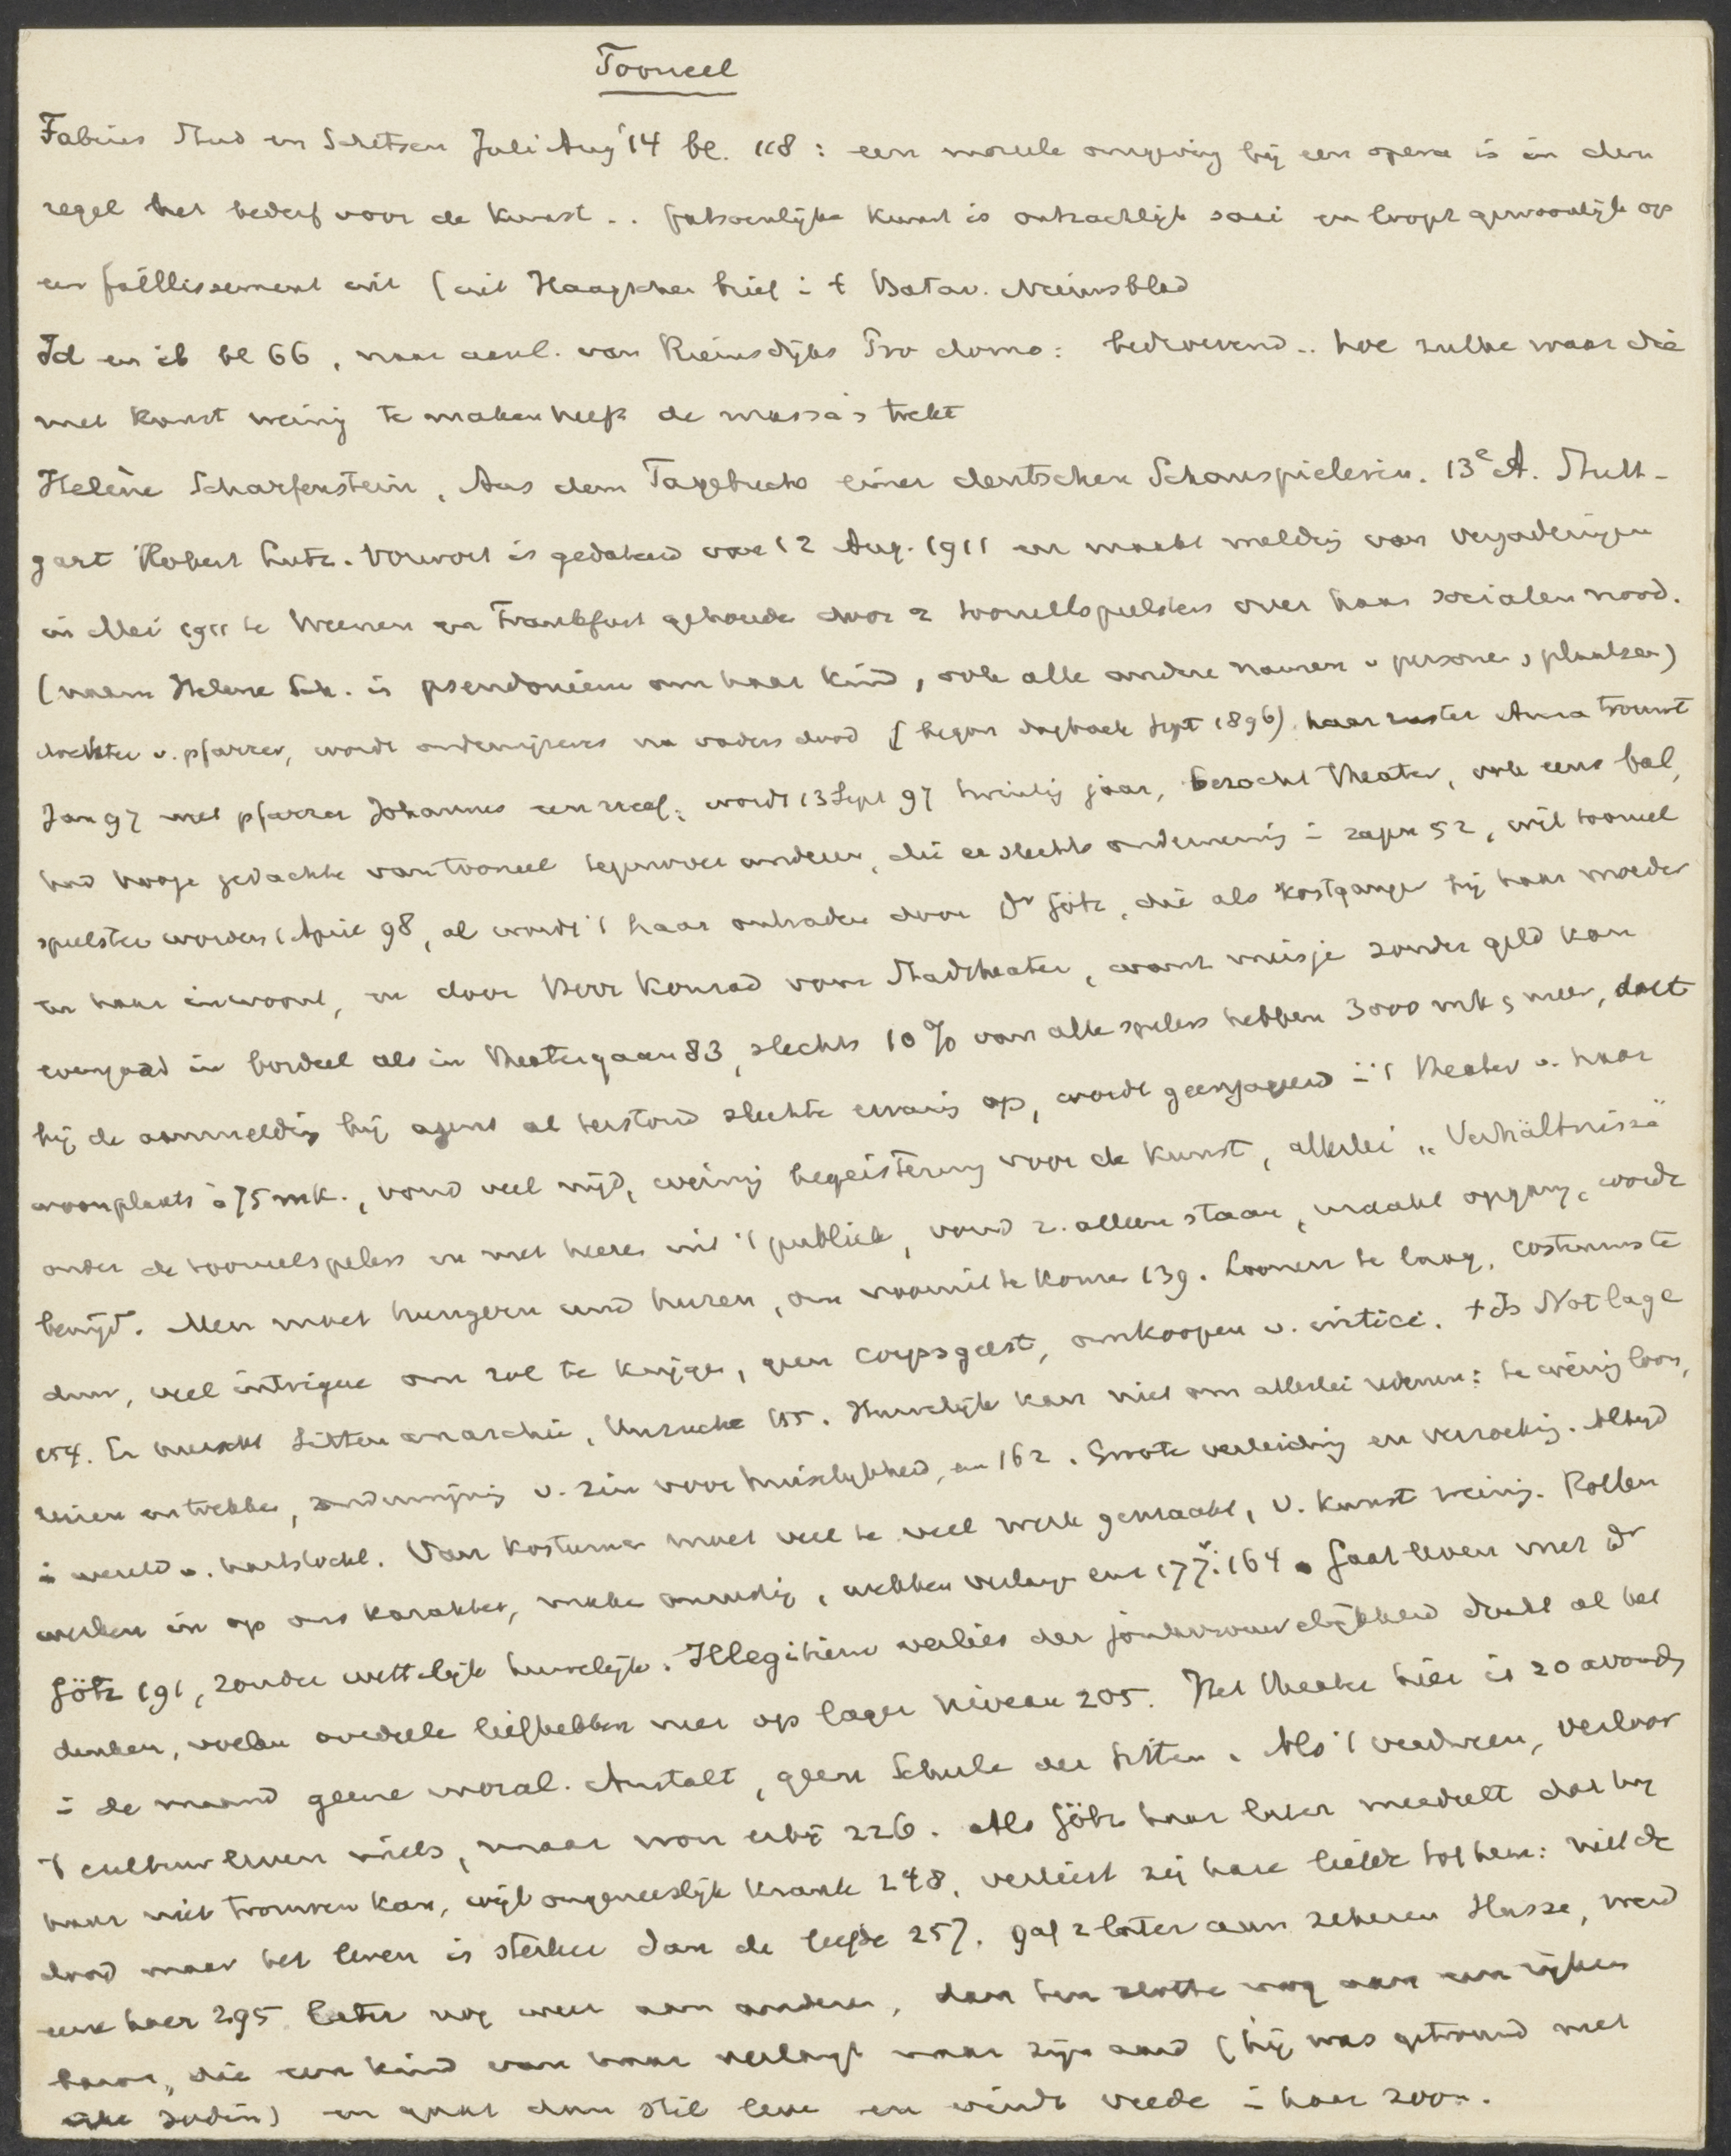 Tooneel
Fabius Stud en Schetsen Juli Aug '14 bl. 118 : een moreele omgeving bij een opera is in den
regel het bederf voor de kunst .. fatsoenlijke kunst is ontzachlijk saai en loopt gewoonlijk op
een faillissement uit (uit Haagschen brief i/h Batav. Nieuwsblad
Id en ib bl 66, naar aanl. van Riemsdijks Pro domo : bedroevend .. hoe zulke waar die
met kunst weinig te maken heeft de massa's trekt
Helène Scharfenstein, Aus dem Tagebuch einer deutschen Schauspielerin. 13e A. Stutt-
gart Robert Lutz. Vorwort is gedateerd van 12 Aug. 1911 en maakt melding van vergaderingen
in Mei 1911 te Weenen en Frankfurt gehouden door 2 tooneelspeelsters over haar socialen nood.
(naam Helene Sch. is pseudoniem om haar kind, ook alle andere namen v personen, plaatsen)
dochter v. pfarrer, wordt onderwijzeres na vaders dood (begon dagboek Sept 1896) haar zuster Anna trouwt
Jan 97 met pfarrer Johannes een neef; wordt 13 Sept 97 twintig jaar, bezocht theater, ook eens bal,
had hooge gedachte van tooneel tegenover anderen, die er slechts onderneming in zagen 52, wil tooneel
speelster worden (April 98, al wordt 't haar ontraden door Dr Götz, die als kostganger bij haar moeder
en haar inwoont, en door Konrad vom Stadtheater, want meisje zonder geld kan
evengoed in bordeel als in theater gaan 83, slechts 10 % van alle spelers hebben 3000 mk & meer, doet
bij de aanmelding bij agent al terstond slechte ervaring op, wordt geengageerd in 't theater v. haar
woonplaats à 75 mk., vond veel nijd, weinig begeistering voor de kunst, allerlei „Verhältnisse"
onder de tooneelspelers en met heeren uit 't publiek, vond z. alleen staan, maakt opgang, wordt
benijd. Men moet hungern und huren, om vooruit te komen 139. Loonen te laag, costuums te
duur, veel intrigue om rol te krijgen, geen corpsgeest, omkoopen v. critici. + Is Notlage
154. Er heerscht Sittenanarchie, Unzucht 155. Huwelijk kan niet om allerlei redenen: te weinig loon,
reizen en trekken, ondermijning v. zin voor huiselijkheid, enz 162. Groote verleiding en verzoeking. Altijd
in wereld v. hartstocht. Van kostumen moet veel te veel werk gemaakt, v. kunst weinig. Rollen
werken in op ons karakter, maken onrustig, wekken verlangen enz 177. 164. Gaat leven met Dr
Götz 191, zonder wettelijk huwelijk. Illegitiem verlies der jonkvrouwelijkheid drukt al het
denken, voelen oordeelen liefhebben neer op lager niveau 205. Het theater hier is 20 avonden
in de maand geene moral. Anstalt, geen Schule der Sitten. Als 't verdween, verloor
't cultuurleven niets, maar won erbij 226. Als Götz haar later meedeelt dat hij
haar niet trouwen kan, wijl ongeneeslijk krank 248, verliest zij hare liefde tot hem: wilde
dood maar het leven is sterker dan de liefde 257. gaf z later aan zekeren Hasse, werd
eene hoer 295 later nog weer aan anderen, dan ten slotte nog aan een rijken
baron, die een kind van haar verlangt naar zijn aard (hij was getrouwd met
eene Jodin) en gaat dan stil leven en vindt vrede in haar zoon.